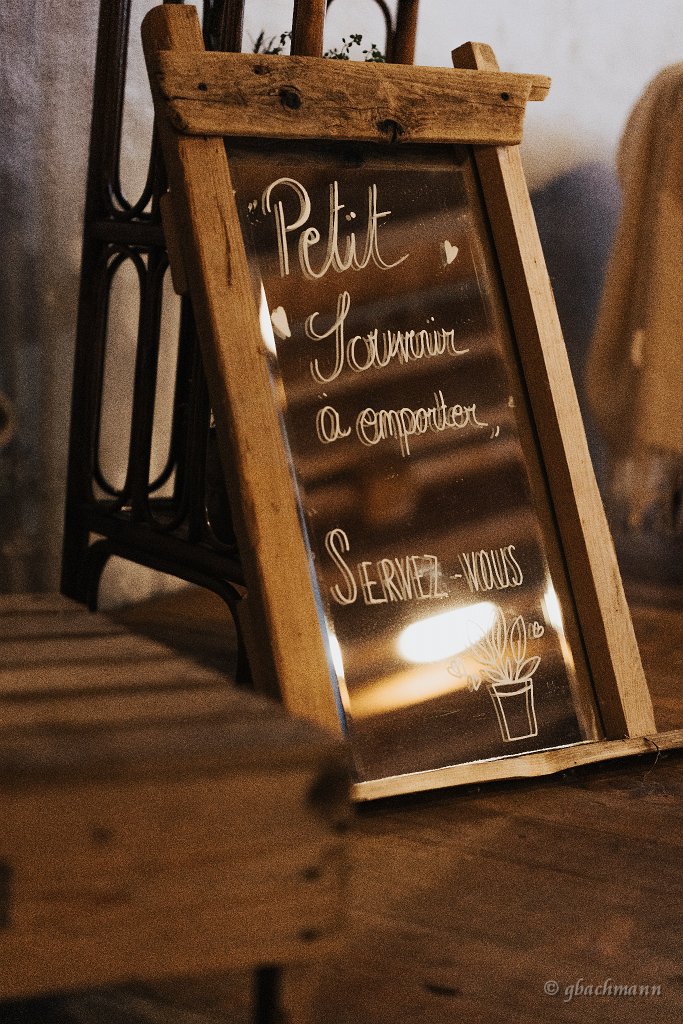 "Petit
Souvenir
à emporter"
SERVEZ-VOUS
© gbachmann